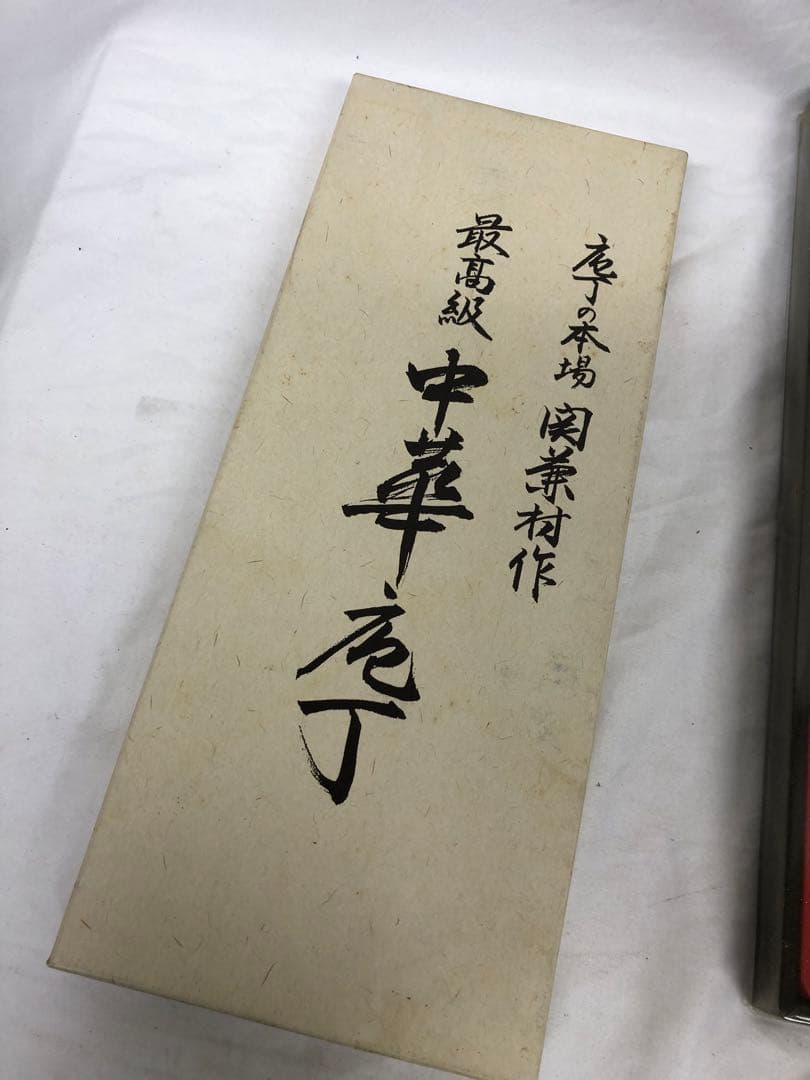 庖丁の本場 関兼村作
最高級 中華庖丁